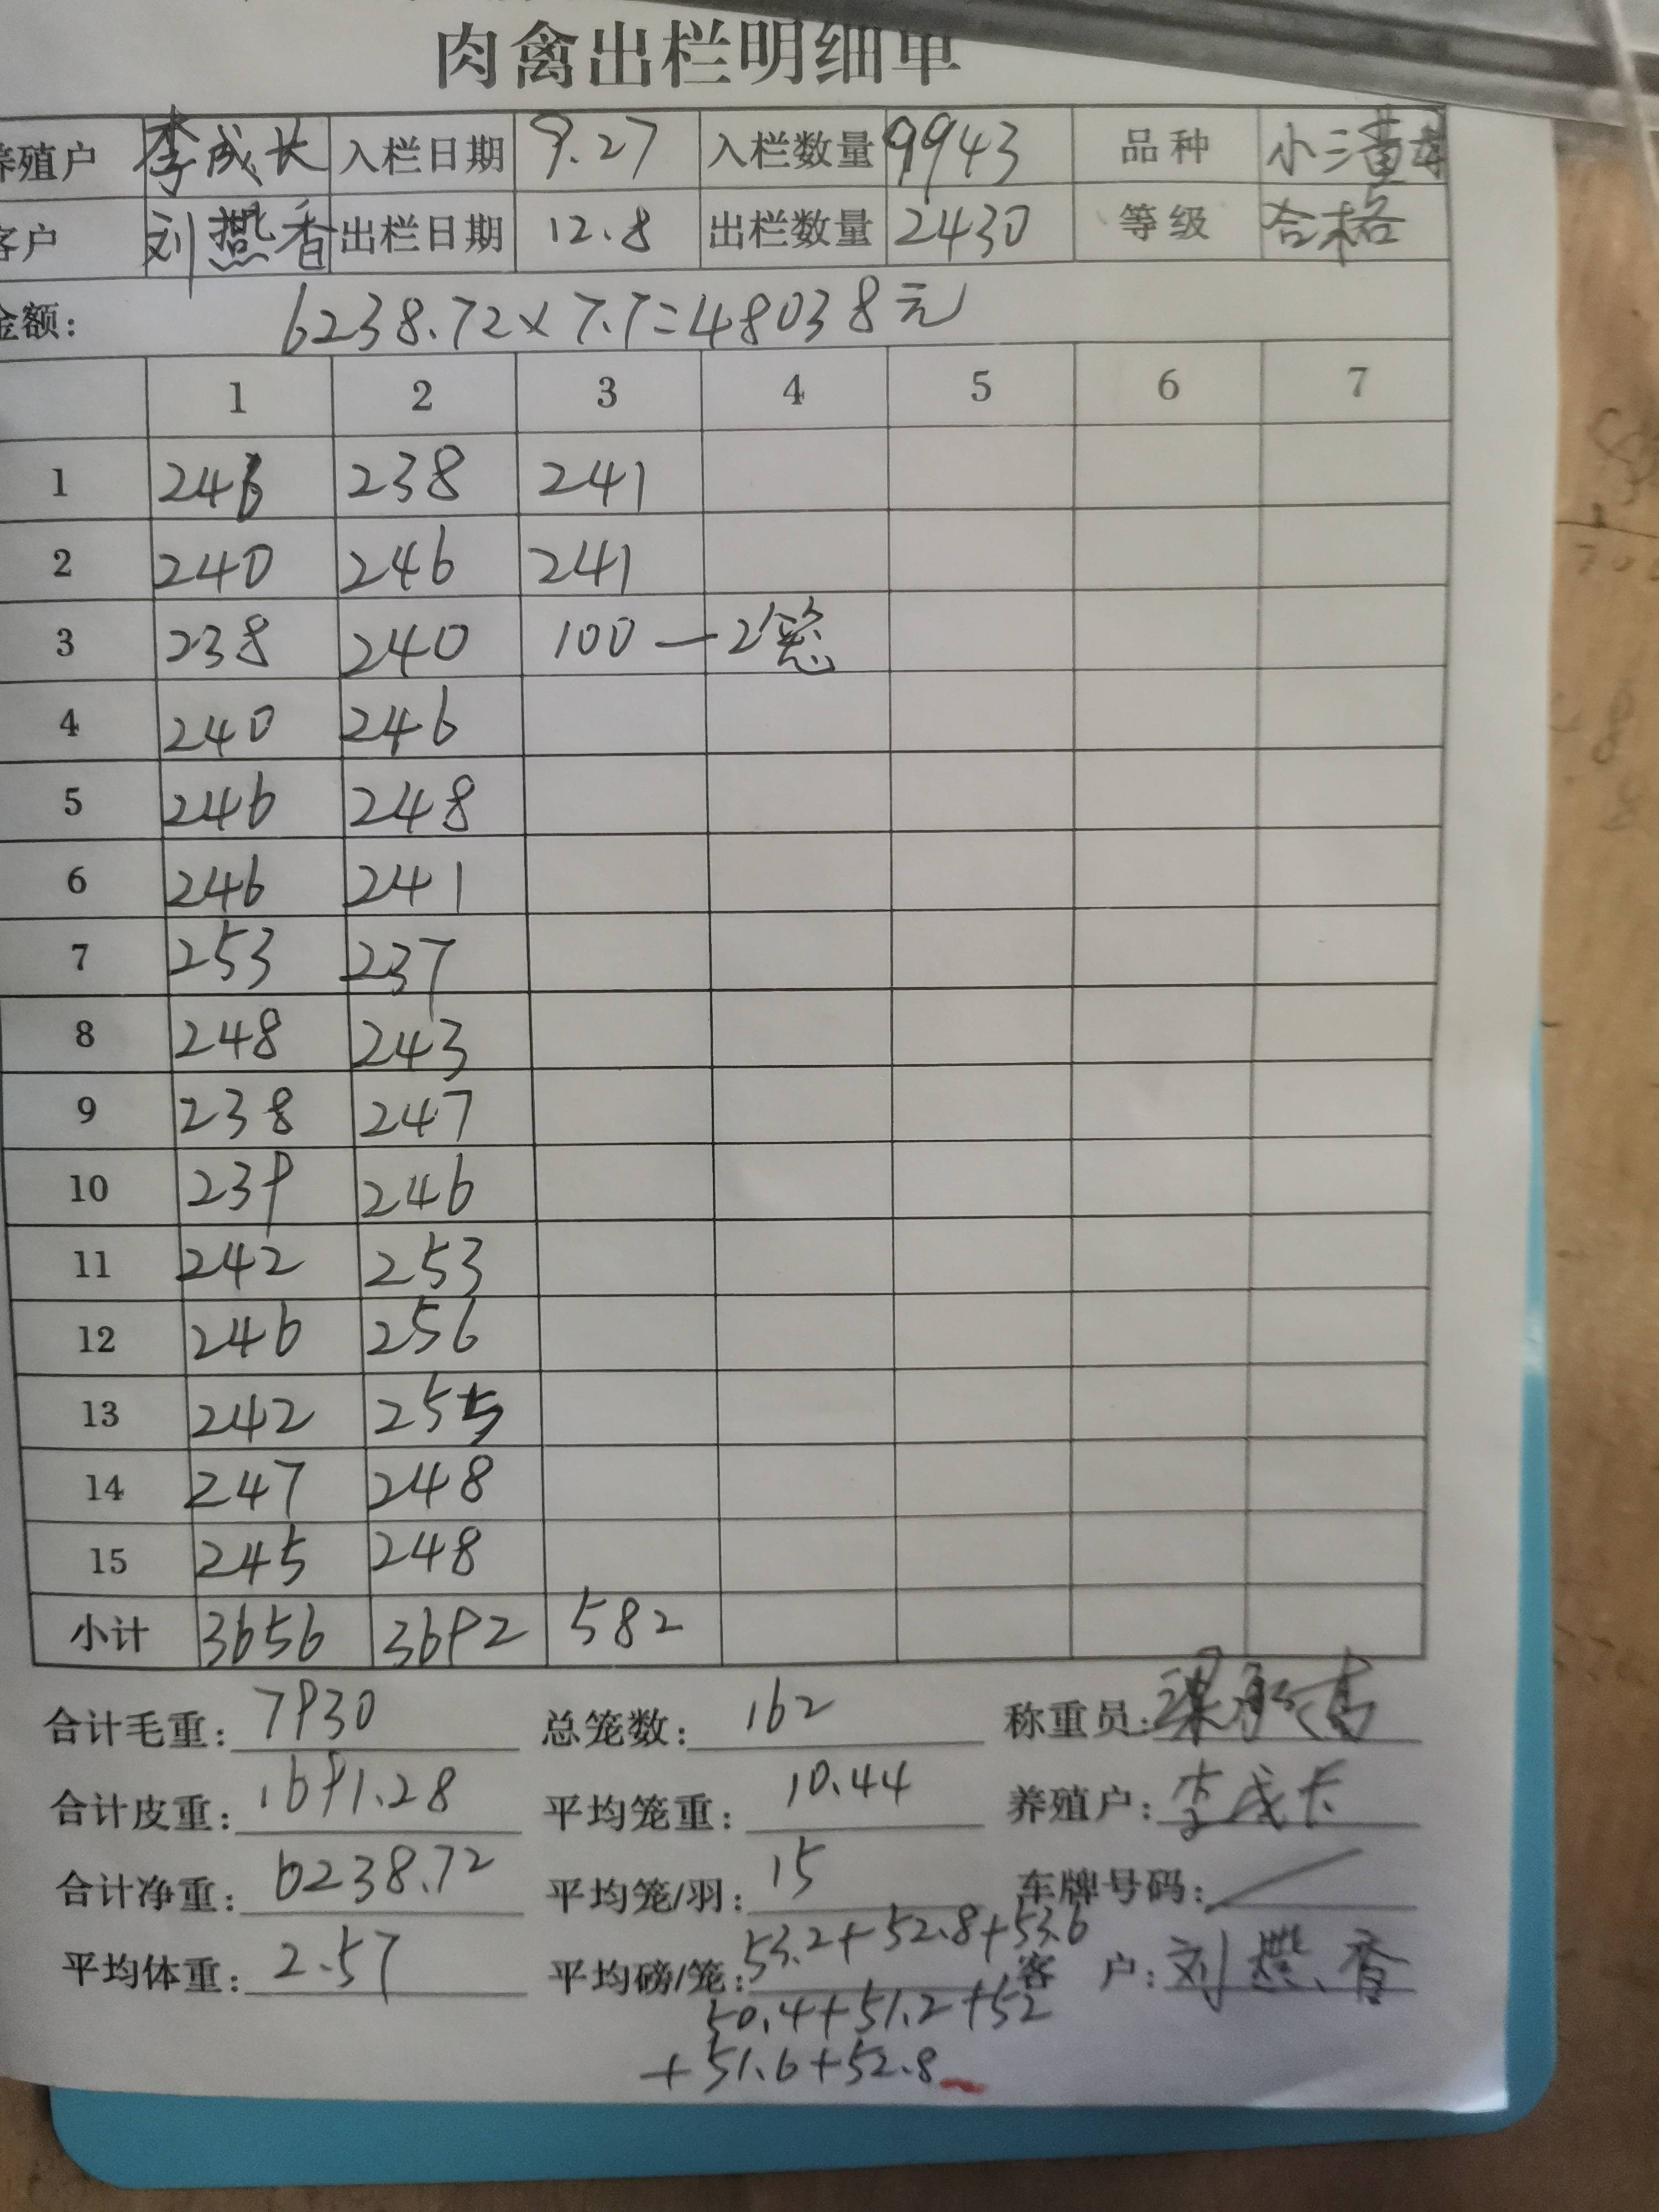 肉禽出栏明细单
养殖户 李成长 入栏日期 9.27 入栏数量 9943 品种
客户 刘燕香 出栏日期 12.8 出栏数量 2430 等级 合格
金额: 6238.72×7.7=48038元
1 2 3 4 5 6 7
1 246 238 241
2 240 246 241
3 238 240 100 — 2笼
4 240 246
5 246 248
6 246 241
7 253 237
8 248 243
9 238 247
10 239 246
11 242 253
12 246 256
13 242 255
14 247 248
15 245 248
小计 3656 3692 582
合计毛重: 7930 总笼数: 162 称重员:
合计皮重: 1691.28 平均笼重: 10.44 养殖户: 李成长
合计净重: 6238.72 平均笼/羽: 15 车牌号码: /
平均体重: 2.57 平均磅/笼: 53.2+52.8+53.6 客户: 刘燃香
50.4+51.2+52
+51.6+52.8